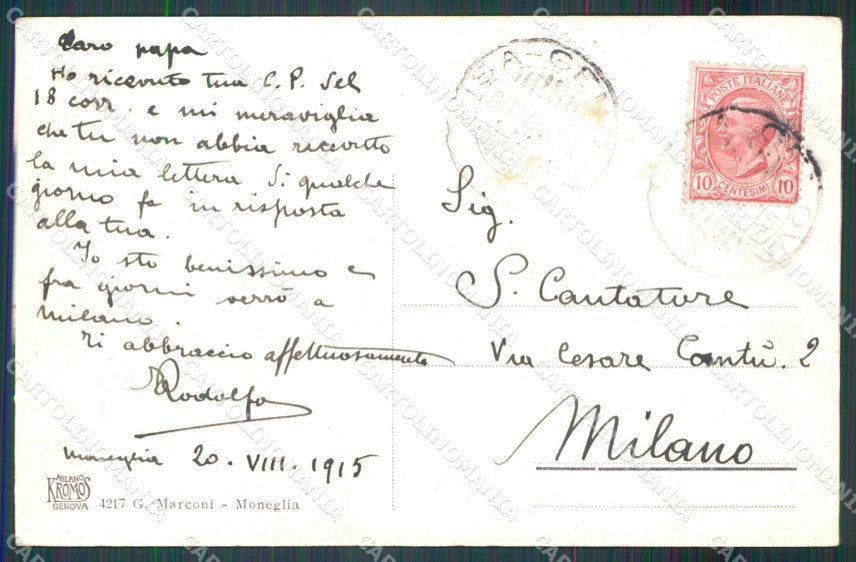 Caro papa
Ho ricevuto tua C.P. del
18 corr. e mi meraviglia
che tu non abbia ricevuto
la mia lettera di qualche
giorno fa in risposta
alla tua.
Io sto benissimo e
fra giorni verrò a
milano.
Ti abbraccio affettuosamente
Rodolfo
Moneglia 20. VIII. 1915
MILANO
KROMOS
GENOVA
4217 G. Marconi - Moneglia
POSTE ITALIANE
10 CENTESIMI 10
Sig.
S. Cantatore
Via Cesare Cantù. 2
Milano
CARTOLINOMANIA